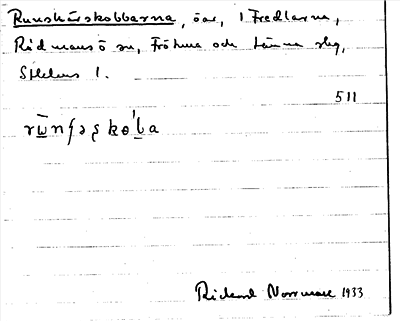 Runskärskobbarna, öar, i Fredlarna,
Rådmansö sn, Frötuna och Länna skg,
Sthlms l.
511
rω̲̄nʃəʂkɵ'b̲a
Rickard Norrman 1933